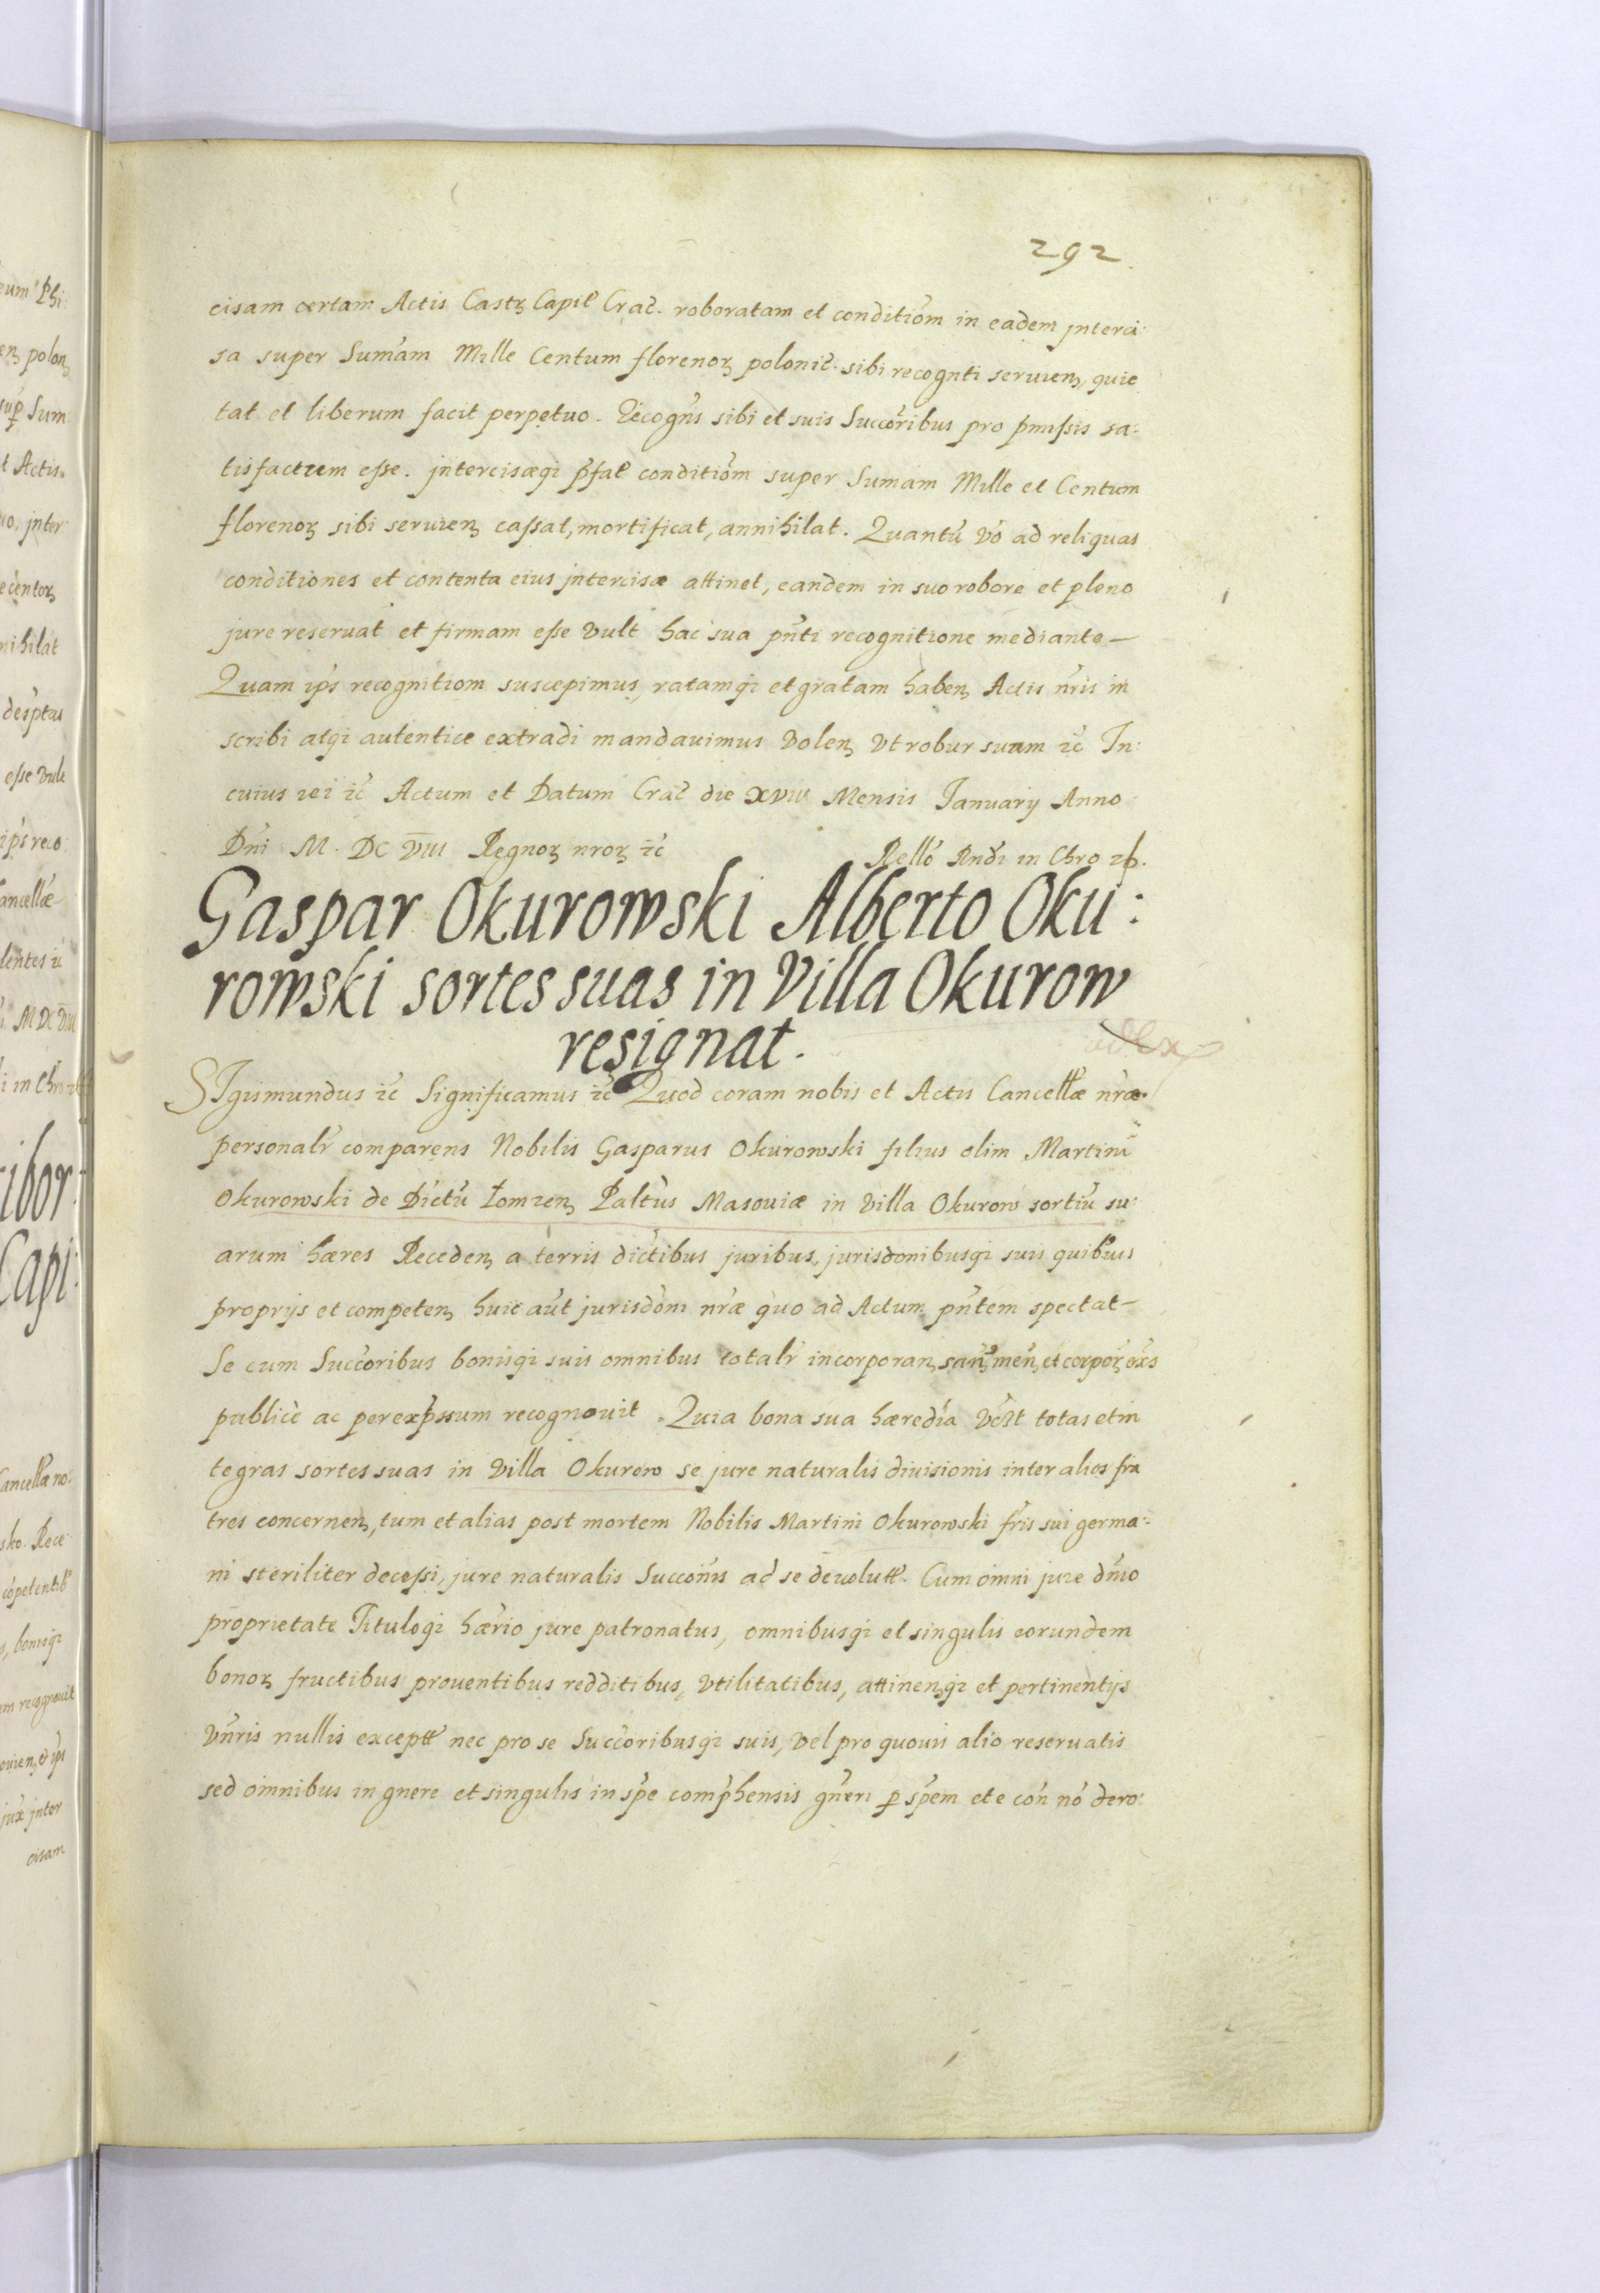 292
cisam certam Actis Castr Capit Crac. roboratam et conditiom in eadem interci:
sa super Sumam Mille Centum florenor polonic. sibi recognti seruien, quie
tat et liberum facit perpetuo. Recogns sibi et suis Succoribus pro pmissis sa:
tisfactum esse. intercisaeqi pfat conditiom super Sumam Mille et Centum
florenor sibi seruien cassat, mortificat, annihilat. Quantu vo ad reliquas
conditiones et contenta eius intercisæ attinet, eandem in suo robore et pleno
jure reseruat et firmam esse vult hac sua pnti recognitione mediante
Quam ips recognitiom suscepimus, ratamqi et gratam haben Actis nris in
scribi atqi autentice extradi mandauimus volen vt robur suum ec In:
cuius rei ec Actum et Datum Crac die XVIII Mensis Ianuarij Anno
Dni M. DC VIII Regnor nror ec
Rello Rndi in Chro
Gaspar Okurowski Alberto Oku:
rowski sortes suas in Villa Okurow
resignat.
SIgismundus ec Significamus ec Quod coram nobis et Actis Cancellæ nræ
personalr comparens Nobilis Gasparus Okurowski filius olim Martini
Okurowski de Dictu Łomzen Paltus Masouiæ in villa Okurow sortiu su:
arum hæres Receden a terris dictibus juribus, jurisdonibusqi suis quibuis
proprijs et competen huic aut jurisdoni nræ quo ad Actum pntem spectat
Se cum Succoribus bonisqi suis omnibus totalr incorporan, san men et corpor exs
publice ac per expssum recognouit. Quia bona sua hæredia vclt totas et in
tegras sortes suas in villa Okurow se jure naturalis diuisionis inter alios fra
tres concernen, tum et alias post mortem Nobilis Martini Okurowski fris sui germa:
ni steriliter decessi, jure naturalis Succonis ad se deuolutt. Cum omni jure dmo
proprietate Tituloqi hærio jure patronatus, omnibusqi et singulis eorundem
bonor fructibus prouentibus redditibus, vtilitatibus, attinenqi et pertinentijs
vnris nullis exceptt nec pro se Succoribusqi suis, vel pro quouis alio reseruatis
sed omnibus in gnere et singulis in spe comphensis gneri p spem et e con no dero: